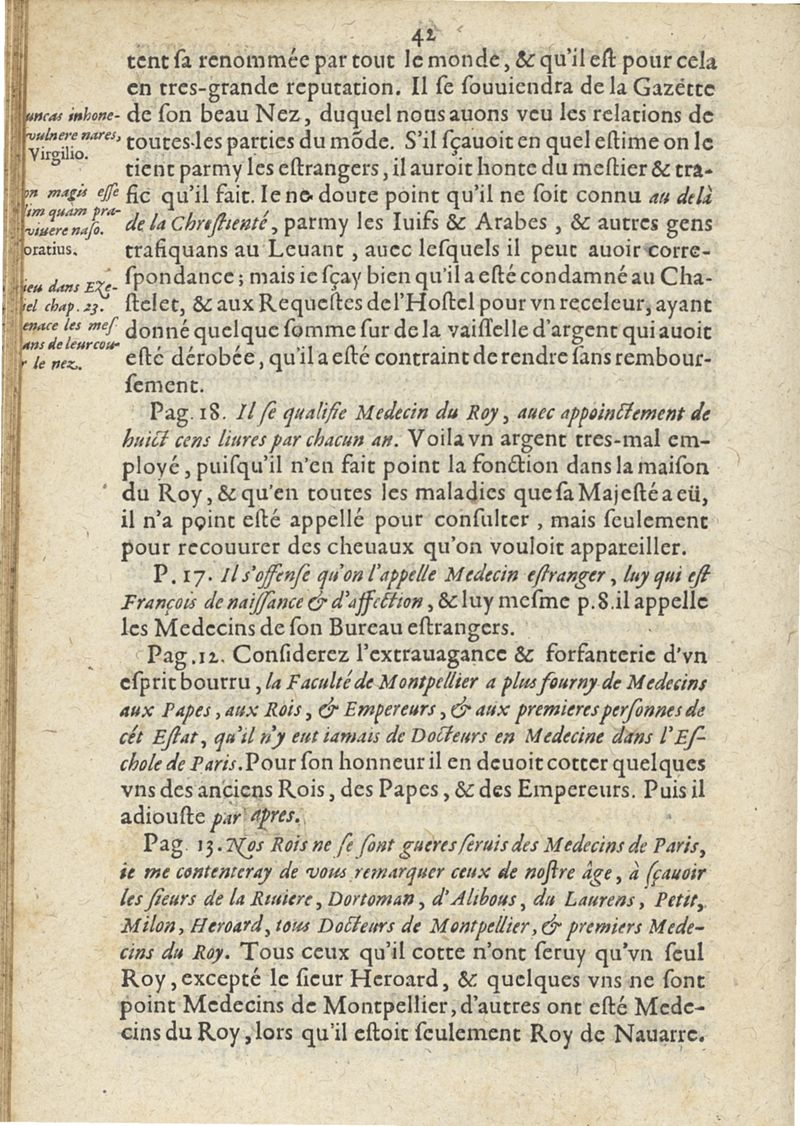 42
tent ſa renommée par tout le monde, & qu'il eſt pour cela
en tres-grande reputation. Il ſe ſouuiendra de la Gazette
de ſon beau Nez, duquel nous auons veu les relations de
toutes les parties du mõde. S'il ſçauoit en quel eſtime on le
tient parmy les eſtrangers, il auroit honte du meſtier & tra-
fic qu'il fait. Ie ne doute point qu'il ne ſoit connu au delà
de la Chreſtienté, parmy les Iuifs & Arabes, & autres gens
trafiquans au Leuant, auec leſquels il peut auoir corre-
ſpondance; mais ie ſçay bien qu'il a eſté condamné au Cha-
ſtelet, & aux Requeſtes de l'Hoſtel pour vn receleur, ayant
donné quelque ſomme ſur de la vaiſſelle d'argent qui auoit
eſté dérobée, qu'il a eſté contraint de rendre ſans rembour-
ſement.
uncas inhone-
vulnere nares,
Virgilio.
on magis eſſe
ſim quam pra-
viuere naſo.
oratius.
ieu dans Eze-
iel chap. 23.
enace les meſ
ans de leur cou-
r le nez.
Pag. 18. Il ſe qualifie Medecin du Roy, auec appoinctement de
huict cens liures par chacun an. Voila vn argent tres-mal em-
ployé, puiſqu'il n'en fait point la fonction dans la maiſon
du Roy, & qu'en toutes les maladies que ſa Majeſté a eü,
il n'a point eſté appellé pour conſulter, mais ſeulement
pour recouurer des cheuaux qu'on vouloit appareiller.
P. 17. Il s'offenſe qu'on l'appelle Medecin eſtranger, luy qui eſt
François de naiſſance & d'affection, & luy meſme p. 8. il appelle
les Medecins de ſon Bureau eſtrangers.
Pag. 12. Conſiderez l'extrauagance & forfanterie d'vn
eſprit bourru, la Faculté de Montpellier a plus fourny de Medecins
aux Papes, aux Rois, & Empereurs, & aux premieres perſonnes de
cét Eſtat, qu'il n'y eut iamais de Docteurs en Medecine dans l'Eſ-
chole de Paris. Pour ſon honneur il en deuoit cotter quelques
vns des anciens Rois, des Papes, & des Empereurs. Puis il
adiouſte par apres.
Pag. 13. Nos Rois ne ſe ſont gueres ſeruis des Medecins de Paris,
ie me contenteray de vous remarquer ceux de noſtre âge, à ſçauoir
les ſieurs de la Riuiere, Dortoman, d'Alibous, du Laurens, Petit,
Milon, Heroard, tous Docteurs de Montpellier, & premiers Mede-
cins du Roy. Tous ceux qu'il cotte n'ont ſeruy qu'vn ſeul
Roy, excepté le ſieur Heroard, & quelques vns ne ſont
point Medecins de Montpellier, d'autres ont eſté Mede-
cins du Roy, lors qu'il eſtoit ſeulement Roy de Nauarre.